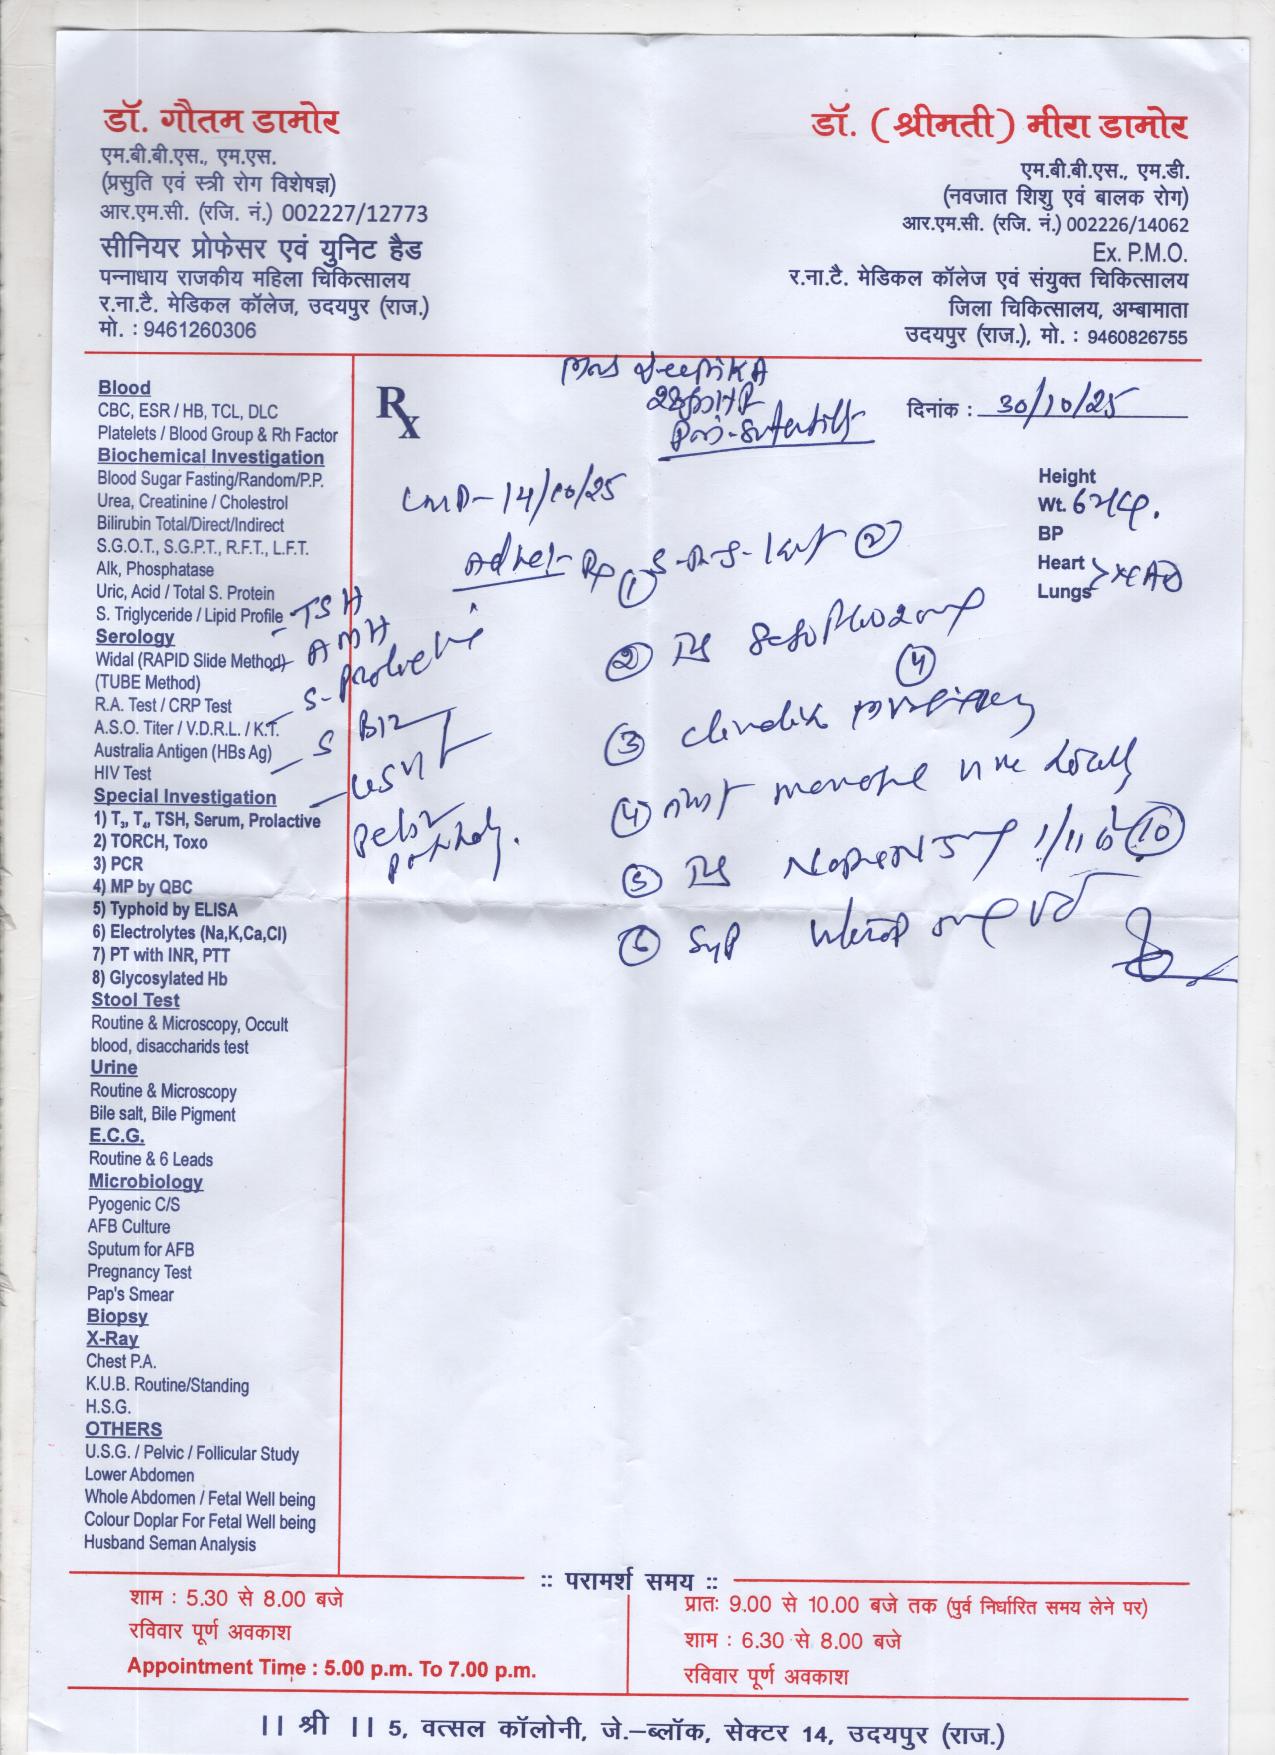 डॉ. गौतम डामोर
एम.बी.बी.एस., एम.एस.
(प्रसुति एवं स्त्री रोग विशेषज्ञ)
आर.एम.सी. (रजि. नं.) 002227/12773
सीनियर प्रोफेसर एवं युनिट हैड
पन्नाधाय राजकीय महिला चिकित्सालय
र.ना.टै. मेडिकल कॉलेज, उदयपुर (राज.)
मो. : 9461260306
डॉ. (श्रीमती) मीरा डामोर
एम.बी.बी.एस., एम.डी.
(नवजात शिशु एवं बालक रोग)
आर.एम.सी. (रजि. नं.) 002226/14062
Ex. P.M.O.
र.ना.टै. मेडिकल कॉलेज एवं संयुक्त चिकित्सालय
जिला चिकित्सालय, अम्बामाता
उदयपुर (राज.), मो. : 9460826755
Blood
CBC, ESR / HB, TCL, DLC
Platelets / Blood Group & Rh Factor
Biochemical Investigation
Blood Sugar Fasting/Random/P.P.
Urea, Creatinine / Cholestrol
Bilirubin Total/Direct/Indirect
S.G.O.T., S.G.P.T., R.F.T., L.F.T.
Alk, Phosphatase
Uric, Acid / Total S. Protein
S. Triglyceride / Lipid Profile
Serology
Widal (RAPID Slide Method)
(TUBE Method)
R.A. Test / CRP Test
A.S.O. Titer / V.D.R.L. / K.T.
Australia Antigen (HBs Ag)
HIV Test
Special Investigation
1) T₃, T₄, TSH, Serum, Prolactive
2) TORCH, Toxo
3) PCR
4) MP by QBC
5) Typhoid by ELISA
6) Electrolytes (Na,K,Ca,Cl)
7) PT with INR, PTT
8) Glycosylated Hb
Stool Test
Routine & Microscopy, Occult
blood, disaccharids test
Urine
Routine & Microscopy
Bile salt, Bile Pigment
E.C.G.
Routine & 6 Leads
Microbiology
Pyogenic C/S
AFB Culture
Sputum for AFB
Pregnancy Test
Pap's Smear
Biopsy
X-Ray
Chest P.A.
K.U.B. Routine/Standing
H.S.G.
OTHERS
U.S.G. / Pelvic / Follicular Study
Lower Abdomen
Whole Abdomen / Fetal Well being
Colour Doplar For Fetal Well being
Husband Seman Analysis
TSH
AMH
S-
S B12
Rx
Mrs DeepikA
दिनांक : 30/10/25
LMP- 14/10/25
Height
Wt.
BP
Heart
Lungs
①
②
③
④
⑤
⑥ Syp
:: परामर्श समय ::
शाम : 5.30 से 8.00 बजे
रविवार पूर्ण अवकाश
Appointment Time : 5.00 p.m. To 7.00 p.m.
प्रातः 9.00 से 10.00 बजे तक (पुर्व निर्धारित समय लेने पर)
शाम : 6.30 से 8.00 बजे
रविवार पूर्ण अवकाश
|| श्री || 5, वत्सल कॉलोनी, जे.–ब्लॉक, सेक्टर 14, उदयपुर (राज.)